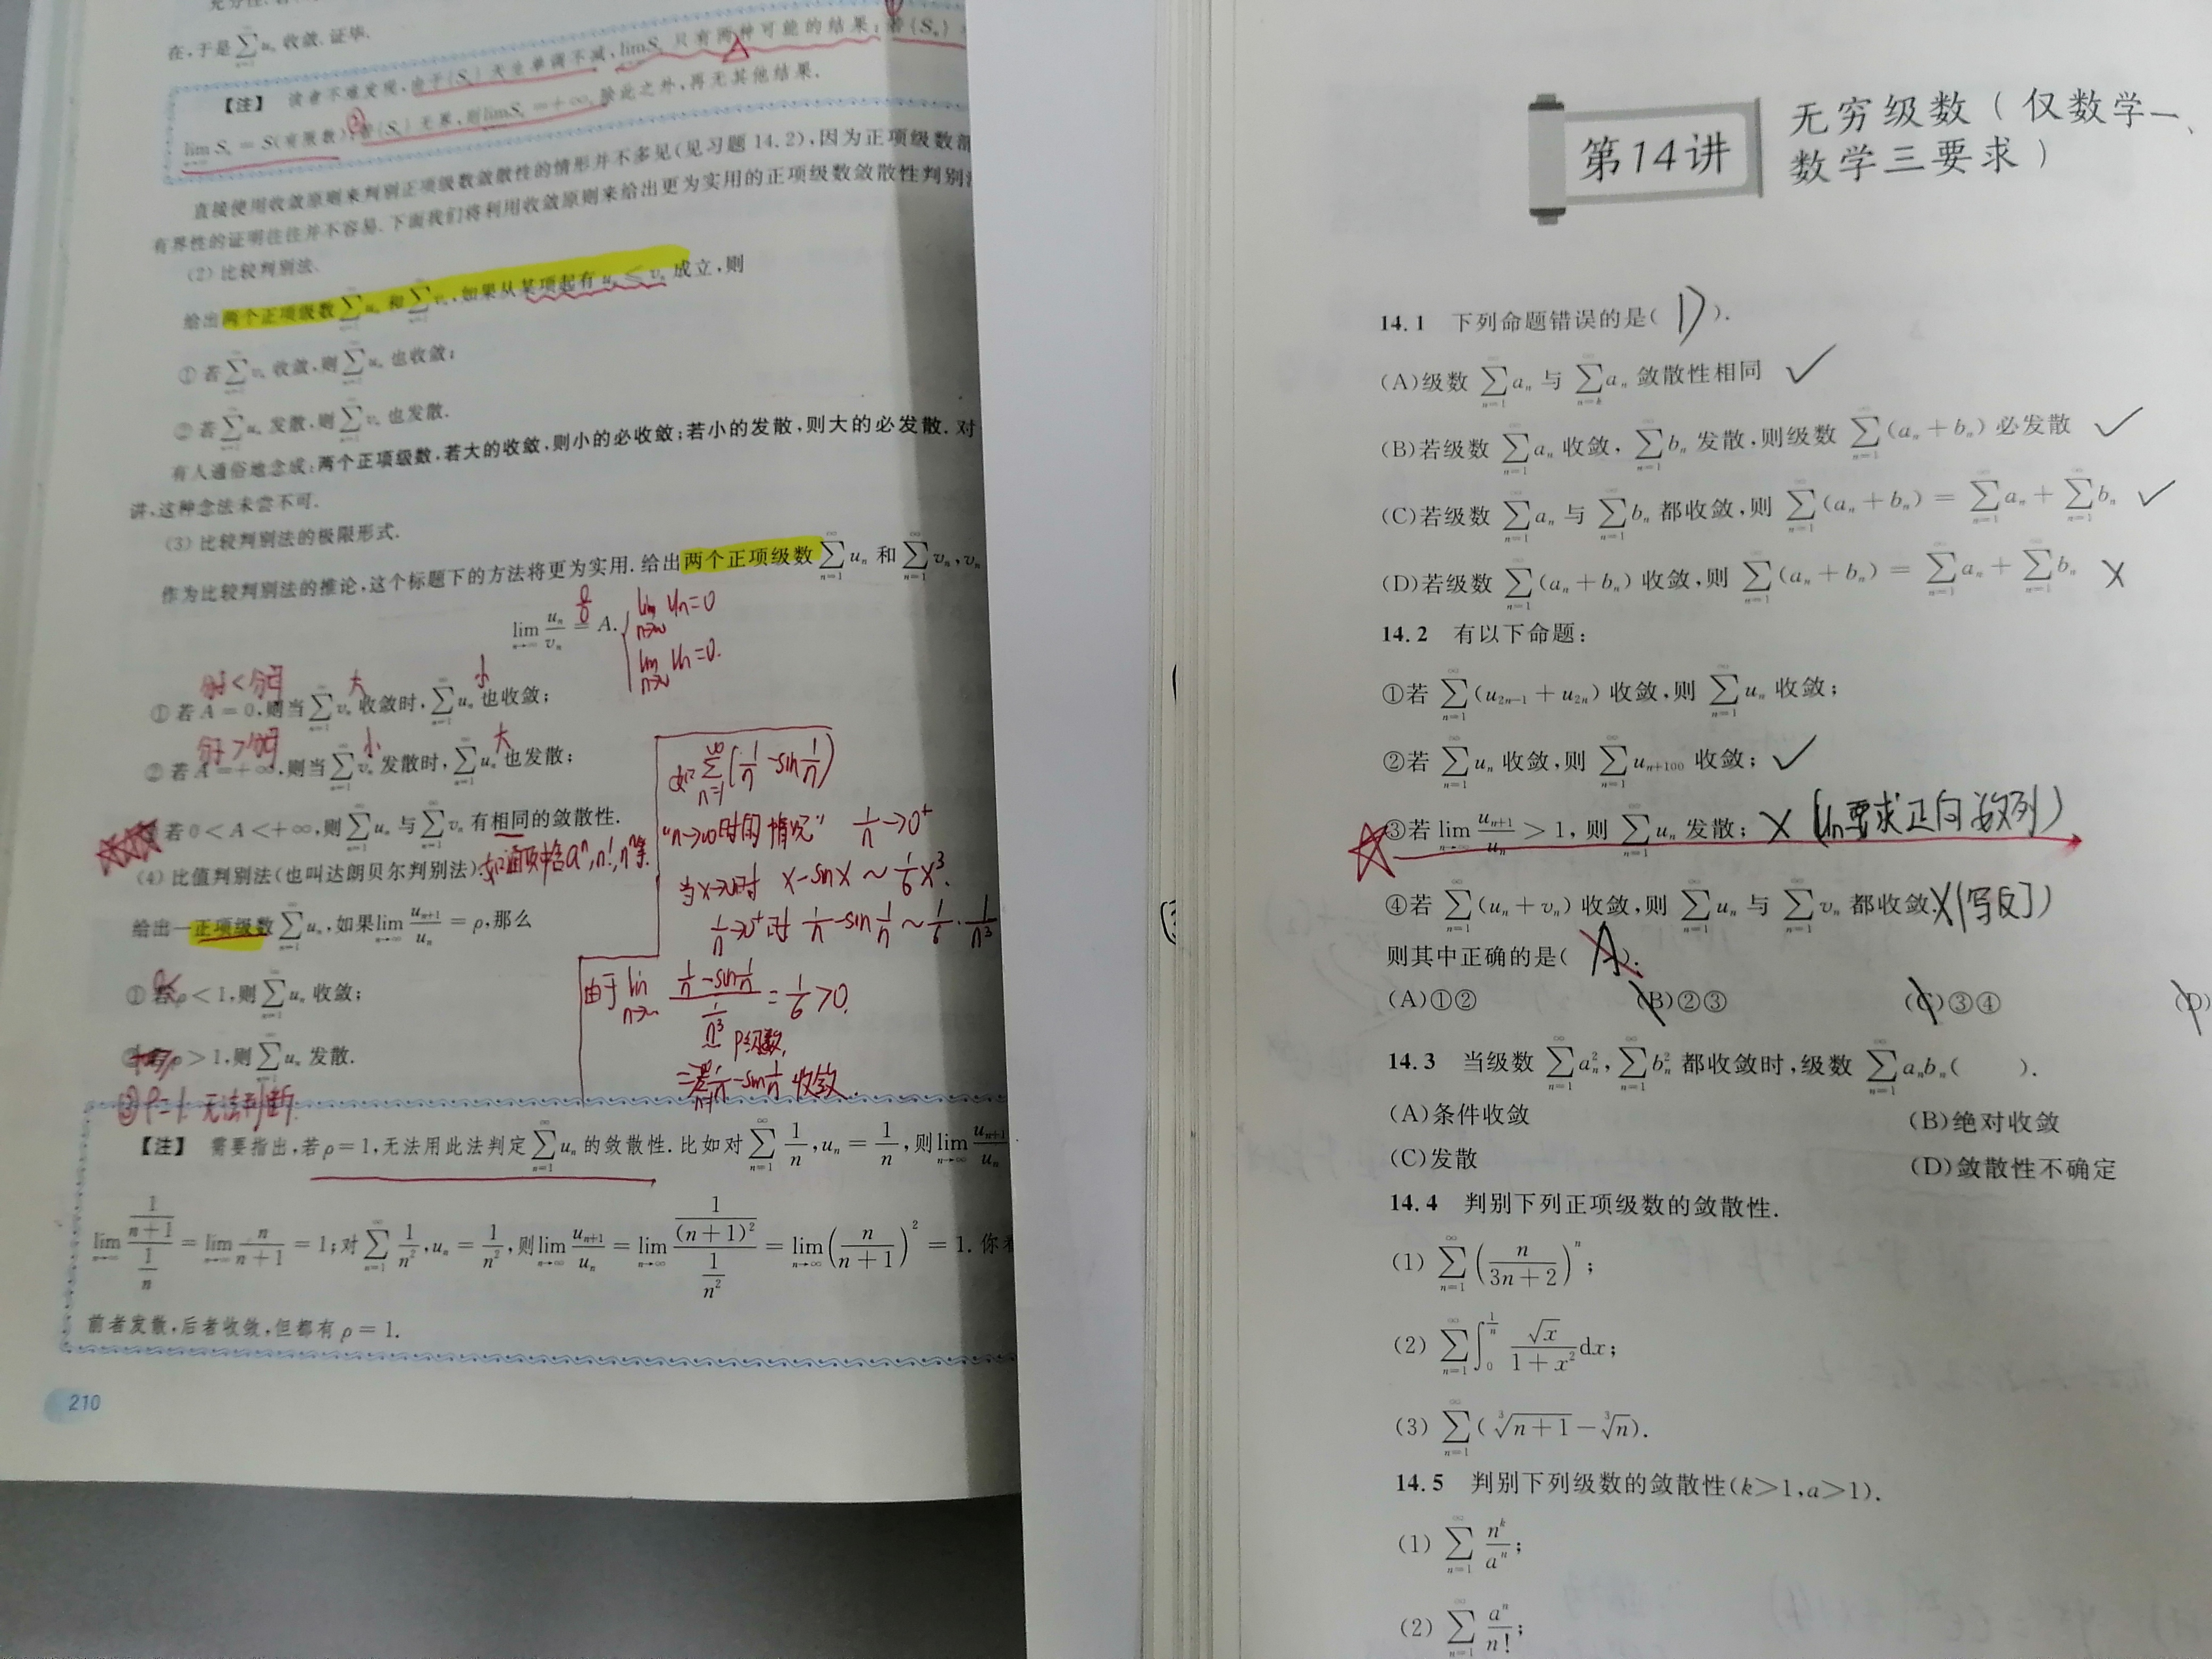 在,于是∑uₙ收敛.证毕.
【注】 读者不难发现,由于{Sₙ}天生单调不减,limSₙ只有两种可能的结果:若{Sₙ}
lim Sₙ = S(有限数);若{Sₙ}无界,则limSₙ=+∞,除此之外,再无其他结果.
直接使用收敛原则来判别正项级数敛散性的情形并不多见(见习题14.2),因为正项级数部
有界性的证明往往并不容易.下面我们将利用收敛原则来给出更为实用的正项级数敛散性判别
(2)比较判别法.
给出两个正项级数∑uₙ和∑vₙ,如果从某项起有uₙ≤vₙ成立,则
①若∑vₙ收敛,则∑uₙ也收敛;
②若∑uₙ发散,则∑vₙ也发散.
有人通俗地念成:两个正项级数,若大的收敛,则小的必收敛;若小的发散,则大的必发散.对
讲,这种念法未尝不可.
(3)比较判别法的极限形式.
作为比较判别法的推论,这个标题下的方法将更为实用.给出两个正项级数∑uₙ和∑vₙ,vₙ
lim(n→∞) uₙ/vₙ = A.
0/0
lim(n→∞) uₙ=0
lim(n→∞) vₙ=0.
分子<分母 大 小
①若A=0,则当∑vₙ收敛时,∑uₙ也收敛;
分子>分母 小 大
②若A=+∞,则当∑vₙ发散时,∑uₙ也发散;
若0<A<+∞,则∑uₙ与∑vₙ有相同的敛散性.
(4)比值判别法(也叫达朗贝尔判别法).如通项中含aⁿ,n!,nⁿ等.
给出一正项级数∑uₙ,如果lim(n→∞) uₙ₊₁/uₙ=ρ,那么
①若ρ<1,则∑uₙ收敛;
ρ>1,则∑uₙ发散.
③ρ=1 无法判断.
∑(n=1,∞)(1/n-sin1/n)
"n→∞时的情况" 1/n→0⁺
当x→0时 x-sinx~1/6x³.
1/n→0⁺时 1/n-sin1/n~1/6·1/n³
由于lim(n→∞) (1/n-sin1/n)/(1/n³)=1/6>0.
P级数,
1/n-sin1/n 收敛.
【注】 需要指出,若ρ=1,无法用此法判定∑uₙ的敛散性.比如对∑(n=1,∞)1/n,uₙ=1/n,则lim(n→∞) uₙ₊₁/uₙ
lim(n→∞) (1/(n+1))/(1/n)=lim(n→∞) n/(n+1)=1;对∑(n=1,∞)1/n²,uₙ=1/n²,则lim(n→∞) uₙ₊₁/uₙ=lim(n→∞) (1/(n+1)²)/(1/n²)=lim(n→∞)(n/(n+1))²=1.你
前者发散,后者收敛,但都有ρ=1.
210
第14讲
无穷级数(仅数学一、
数学三要求)
14.1 下列命题错误的是( D ).
(A)级数∑(n=1,∞)aₙ与∑(n=k,∞)aₙ敛散性相同 ✓
(B)若级数∑(n=1,∞)aₙ收敛,∑(n=1,∞)bₙ发散,则级数∑(n=1,∞)(aₙ+bₙ)必发散 ✓
(C)若级数∑(n=1,∞)aₙ与∑(n=1,∞)bₙ都收敛,则∑(n=1,∞)(aₙ+bₙ)=∑(n=1,∞)aₙ+∑(n=1,∞)bₙ ✓
(D)若级数∑(n=1,∞)(aₙ+bₙ)收敛,则∑(n=1,∞)(aₙ+bₙ)=∑(n=1,∞)aₙ+∑(n=1,∞)bₙ ×
14.2 有以下命题:
①若∑(n=1,∞)(u₂ₙ₋₁+u₂ₙ)收敛,则∑(n=1,∞)uₙ收敛;
②若∑(n=1,∞)uₙ收敛,则∑(n=1,∞)uₙ₊₁₀₀收敛; ✓
③若lim(n→∞) uₙ₊₁/uₙ>1,则∑(n=1,∞)uₙ发散; ×(uₙ要求正向数列)
④若∑(n=1,∞)(uₙ+vₙ)收敛,则∑(n=1,∞)uₙ与∑(n=1,∞)vₙ都收敛.×(写反)
则其中正确的是( A ).
(A)①② (B)②③ (C)③④ (D)
14.3 当级数∑(n=1,∞)aₙ²,∑(n=1,∞)bₙ²都收敛时,级数∑(n=1,∞)aₙbₙ( ).
(A)条件收敛 (B)绝对收敛
(C)发散 (D)敛散性不确定
14.4 判别下列正项级数的敛散性.
(1)∑(n=1,∞)(n/(3n+2))ⁿ;
(2)∑(n=1,∞)∫₀^(1/n) √x/(1+x²)dx;
(3)∑(n=1,∞)(∛(n+1)-∛n).
14.5 判别下列级数的敛散性(k>1,a>1).
(1)∑(n=1,∞) nᵏ/aⁿ;
(2)∑(n=1,∞) aⁿ/n!;